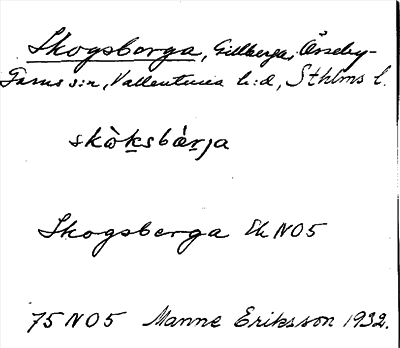 Skogsberga, Gillberga, Össeby-
Garns s:n, Vallentuna h:d, Sthlms l.
skòksbǽrja
Skogsberga Ek NO5
75 NO5 Manne Eriksson 1932.